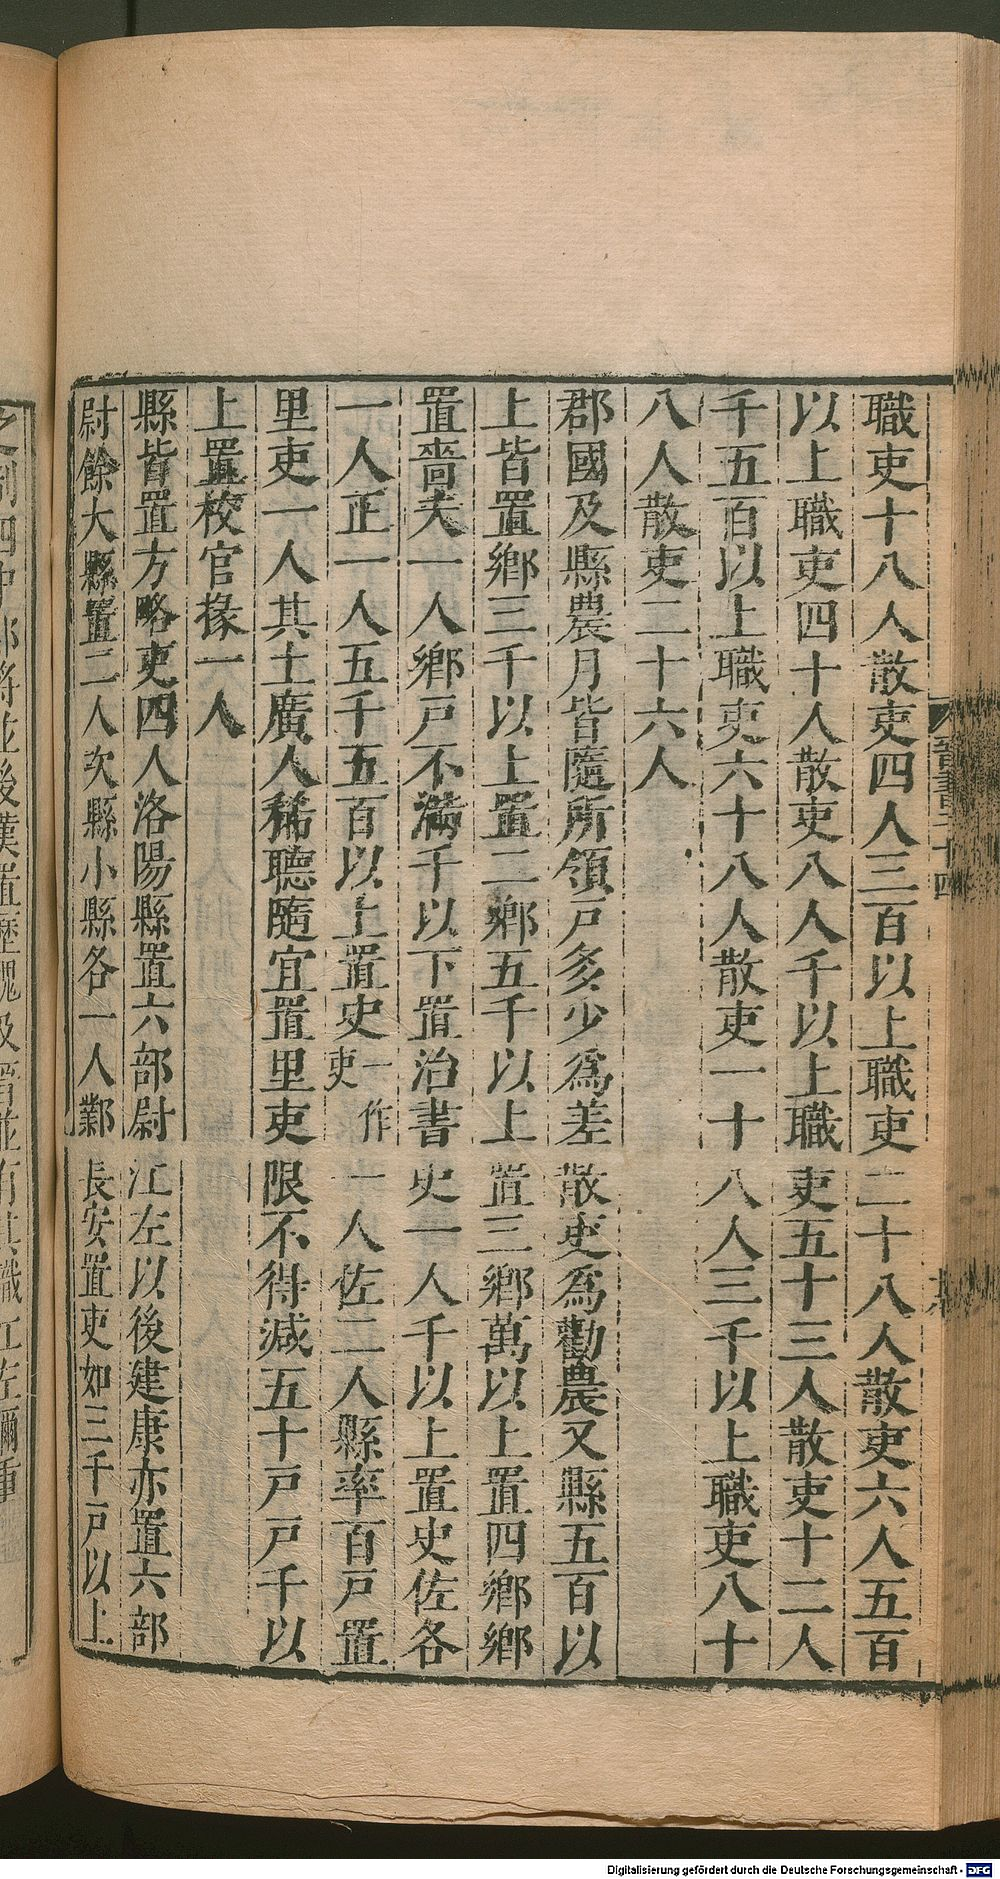 職吏十八人散吏四人三百以上職吏二十八人散吏六人五百
以上職吏四十人散吏八人千以上職吏五十三人散吏十二人
千五百以上職吏六十八人散吏一十八人三千以上職吏八十
八人散吏二十六人
郡國及縣農月皆隨所領戸多少爲差散吏爲勸農又縣五百以
上皆置鄉三千以上置二鄉五千以上置三鄉萬以上置四鄉鄉
置嗇夫一人鄉戸不滿千以下置治書史一人千以上置史佐各
一人正一人五千五百以上置史一作吏一人佐二人縣率百戸置
里吏一人其土廣人稀聽隨宜置里吏限不得減五十戸戸千以
上置校官掾一人
縣皆置方略吏四人洛陽縣置六部尉江左以後建康亦置六部
尉餘大縣置二人次縣小縣各一人鄴長安置吏如三千戸以上
晉書二十四
四中郎將並後漢置歷魏及晉並有其職江左彌重
Digitalisierung gefördert durch die Deutsche Forschungsgemeinschaft - DFG